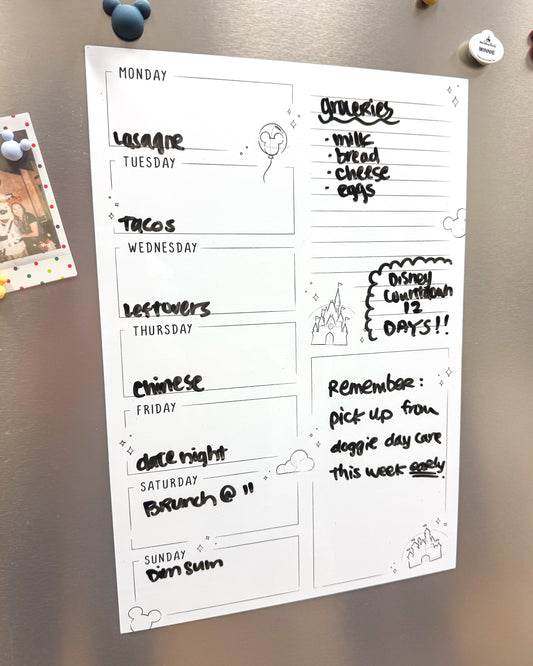 MONDAY
Lasagne
TUESDAY
Tacos
WEDNESDAY
Leftovers
THURSDAY
Chinese
FRIDAY
date night
SATURDAY
Brunch @ 11
SUNDAY
Dim sum
groceries
· milk
· bread
· cheese
· eggs
Disney
Countdown
12
DAYS!!
Remember:
pick up from
doggie day care
this week early
MINNIE